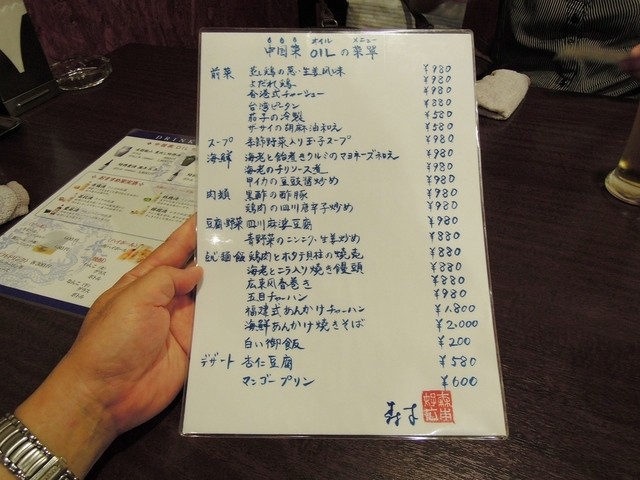 中国菜 OILの菜單
オイル メニュー
前菜 蒸し鶏の葱・生姜風味 ¥980
よだれ鶏 ¥980
香港式チャーシュー ¥980
台湾ピータン ¥880
茄子の冷製 ¥580
ザーサイの胡麻油和え ¥580
スープ 季節野菜入り玉子スープ ¥980
海鮮 海老と飴煮きクルミのマヨネーズ和え ¥980
海老のチリソース煮 ¥980
甲イカの豆豉醤炒め ¥980
肉類 黒酢の酢豚 ¥980
鶏肉の四川唐辛子炒め ¥980
豆腐・野菜 四川麻婆豆腐 ¥980
青野菜のニンニク・生姜炒め ¥880
麺飯 鶏肉とホタテ貝柱の焼売 ¥880
海老とニラ入り焼き饅頭 ¥880
広東風春巻き ¥880
五目チャーハン ¥980
福建式あんかけチャーハン ¥1.800
海鮮あんかけ焼きそば ¥2.000
白い御飯 ¥200
デザート 杏仁豆腐 ¥580
マンゴープリン ¥600
DRINK